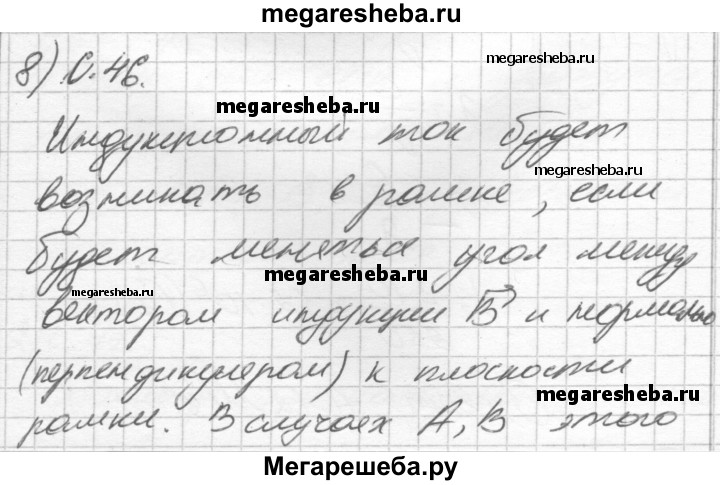 megaresheba.ru
8) С.46.
megaresheba.ru
megaresheba.ru
Индукционный ток будет
megaresheba.ru
возникать в рамке, если
будет меняться угол между
megaresheba.ru
megaresheba.ru
вектором индукции B и нормалью
(перпендикуляром) к плоскости
megaresheba.ru
рамки. В случаех А, В этого
Мегарешеба.ру